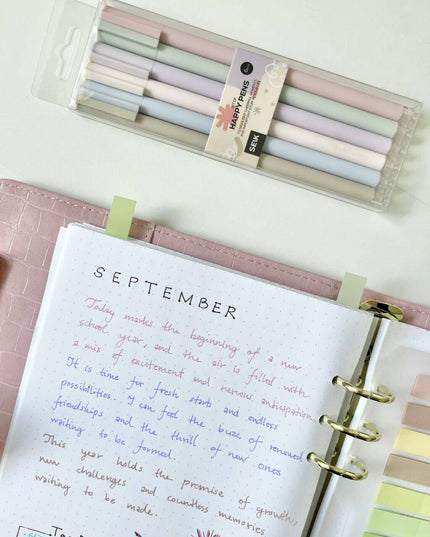 HAPPY PENS
SEIK
SEPTEMBER
Today marks the beginning of a new
school year, and the air is filled with
a mix of excitement and nervous anticipation.
It is time for fresh starts and endless
possibilities. I can feel the buzz of renewed
friendships and the thrill of new ones
waiting to be formed.
This year holds the promise of growth,
new challenges and countless memories
waiting to be made.